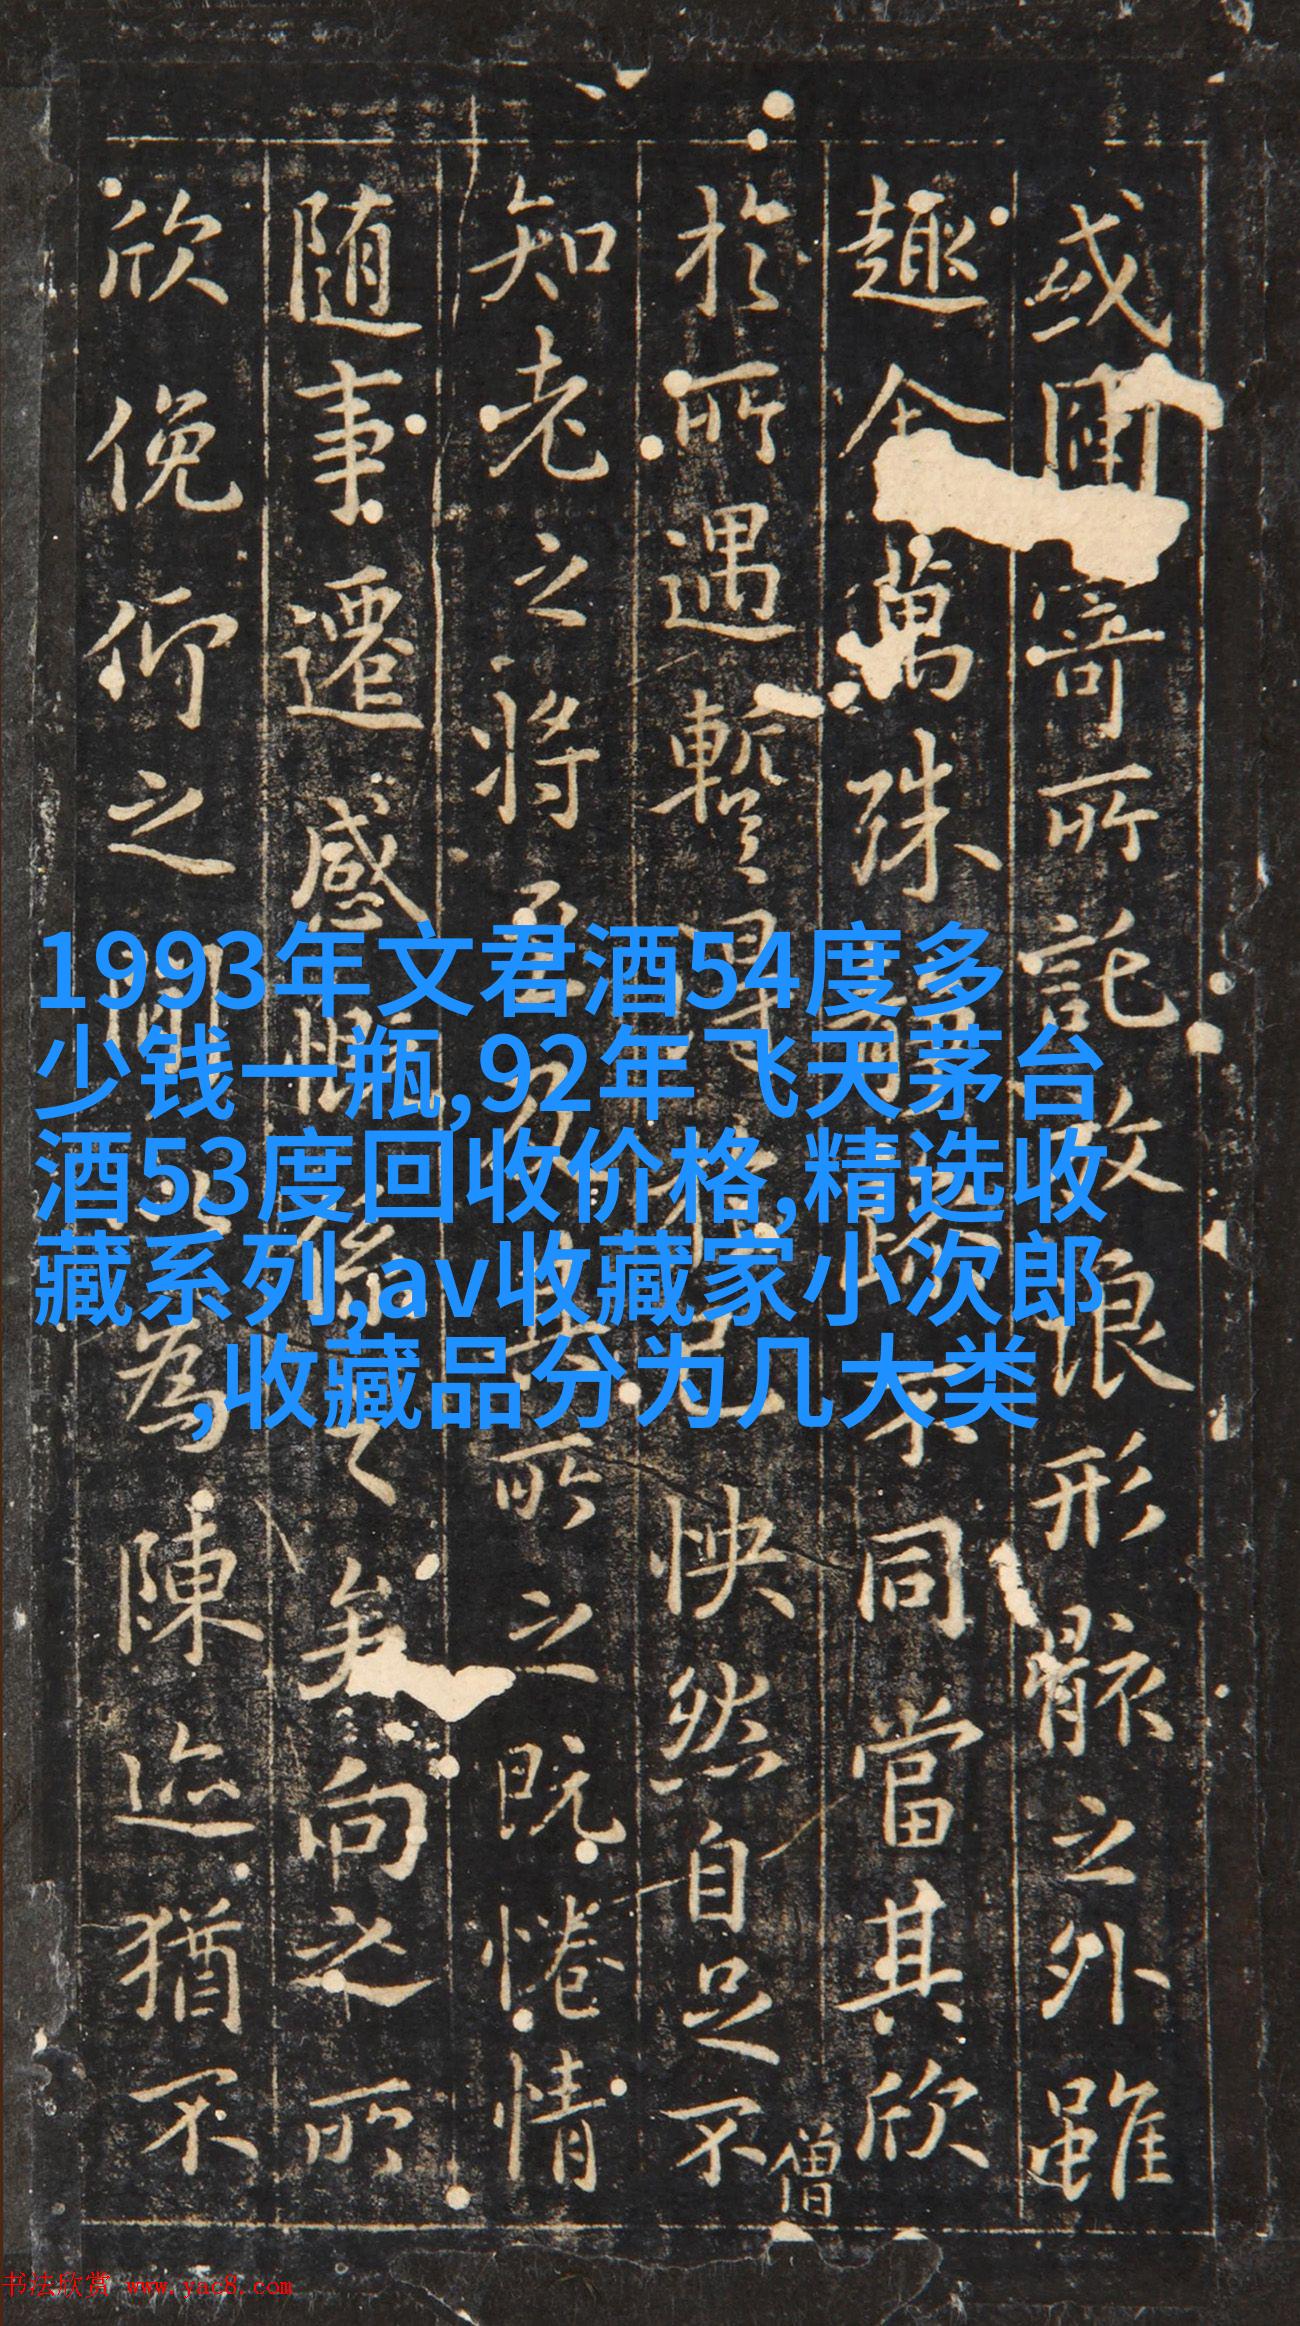 或因寄所託放浪形骸之外雖
趣舍萬殊靜躁不同當其欣
於所遇暫得於己怏然自足不
僧
知老之將至及其所之既惓情
随事遷感慨係之矣向之所
欣俛仰之間以為陳迹猶不
1993年文君酒54度多
少钱一瓶,92年飞天茅台
酒53度回收价格,精选收
藏系列,av收藏家小次郎
,收藏品分为几大类
书法欣赏 www.yac8.com